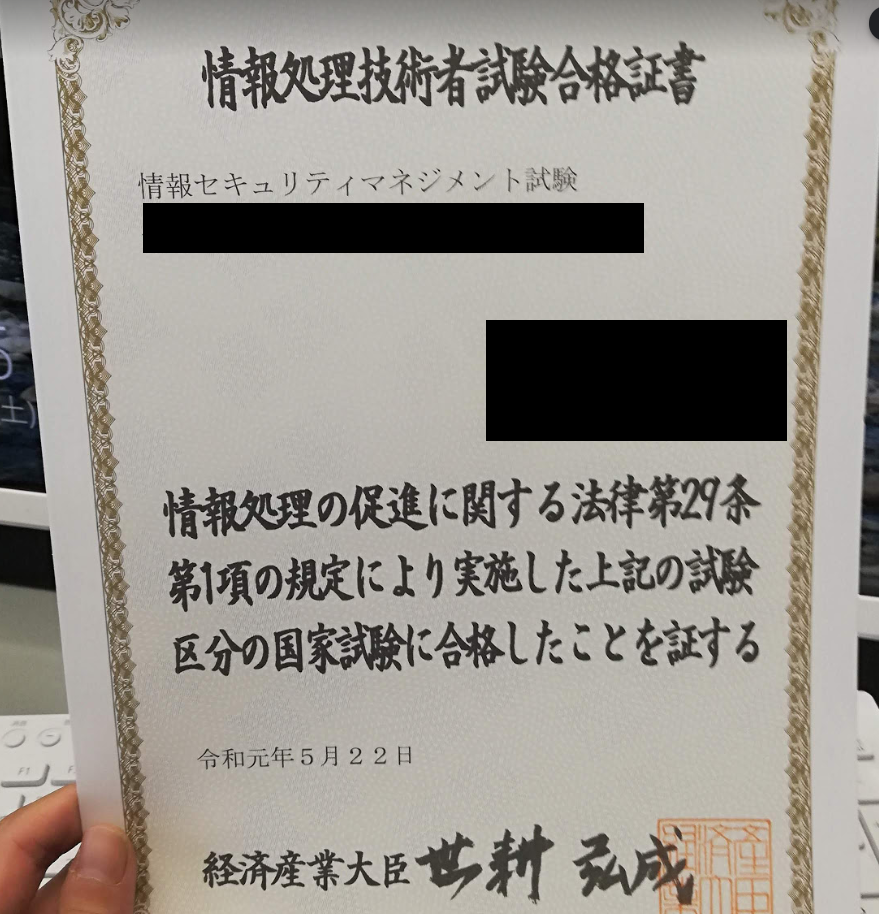 情報処理技術者試験合格証書
情報セキュリティマネジメント試験
情報処理の促進に関する法律第29条
第1項の規定により実施した上記の試験
区分の国家試験に合格したことを証する
令和元年5月22日
経済産業大臣 世耕 弘成
(土)
F1